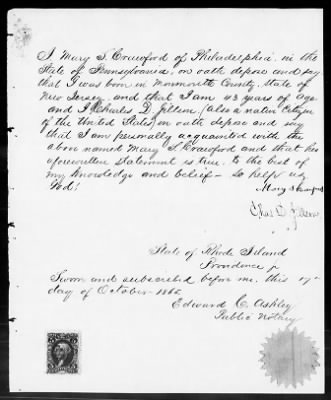 I Mary S. Crawford of Philadelphia in the
State of Pennsylvania, on oath depose and say
that I was born in Monmouth County, State of
New Jersey, and that I am 43 years of age
and I, Charles D. Jillson, (also a native Citizen
of the United States) on oath depose and say
that I am personally acquainted with the
above named Mary S. Crawford and that her
aforewritten statement is true to the best of
my knowledge and belief - So help us
God!
Mary S Crawford
Chas D. Jillson
State of Rhode Island
Providence
Sworn and subscribed before me, this
day of October 1865
Edward C. Ashley
Public Notary